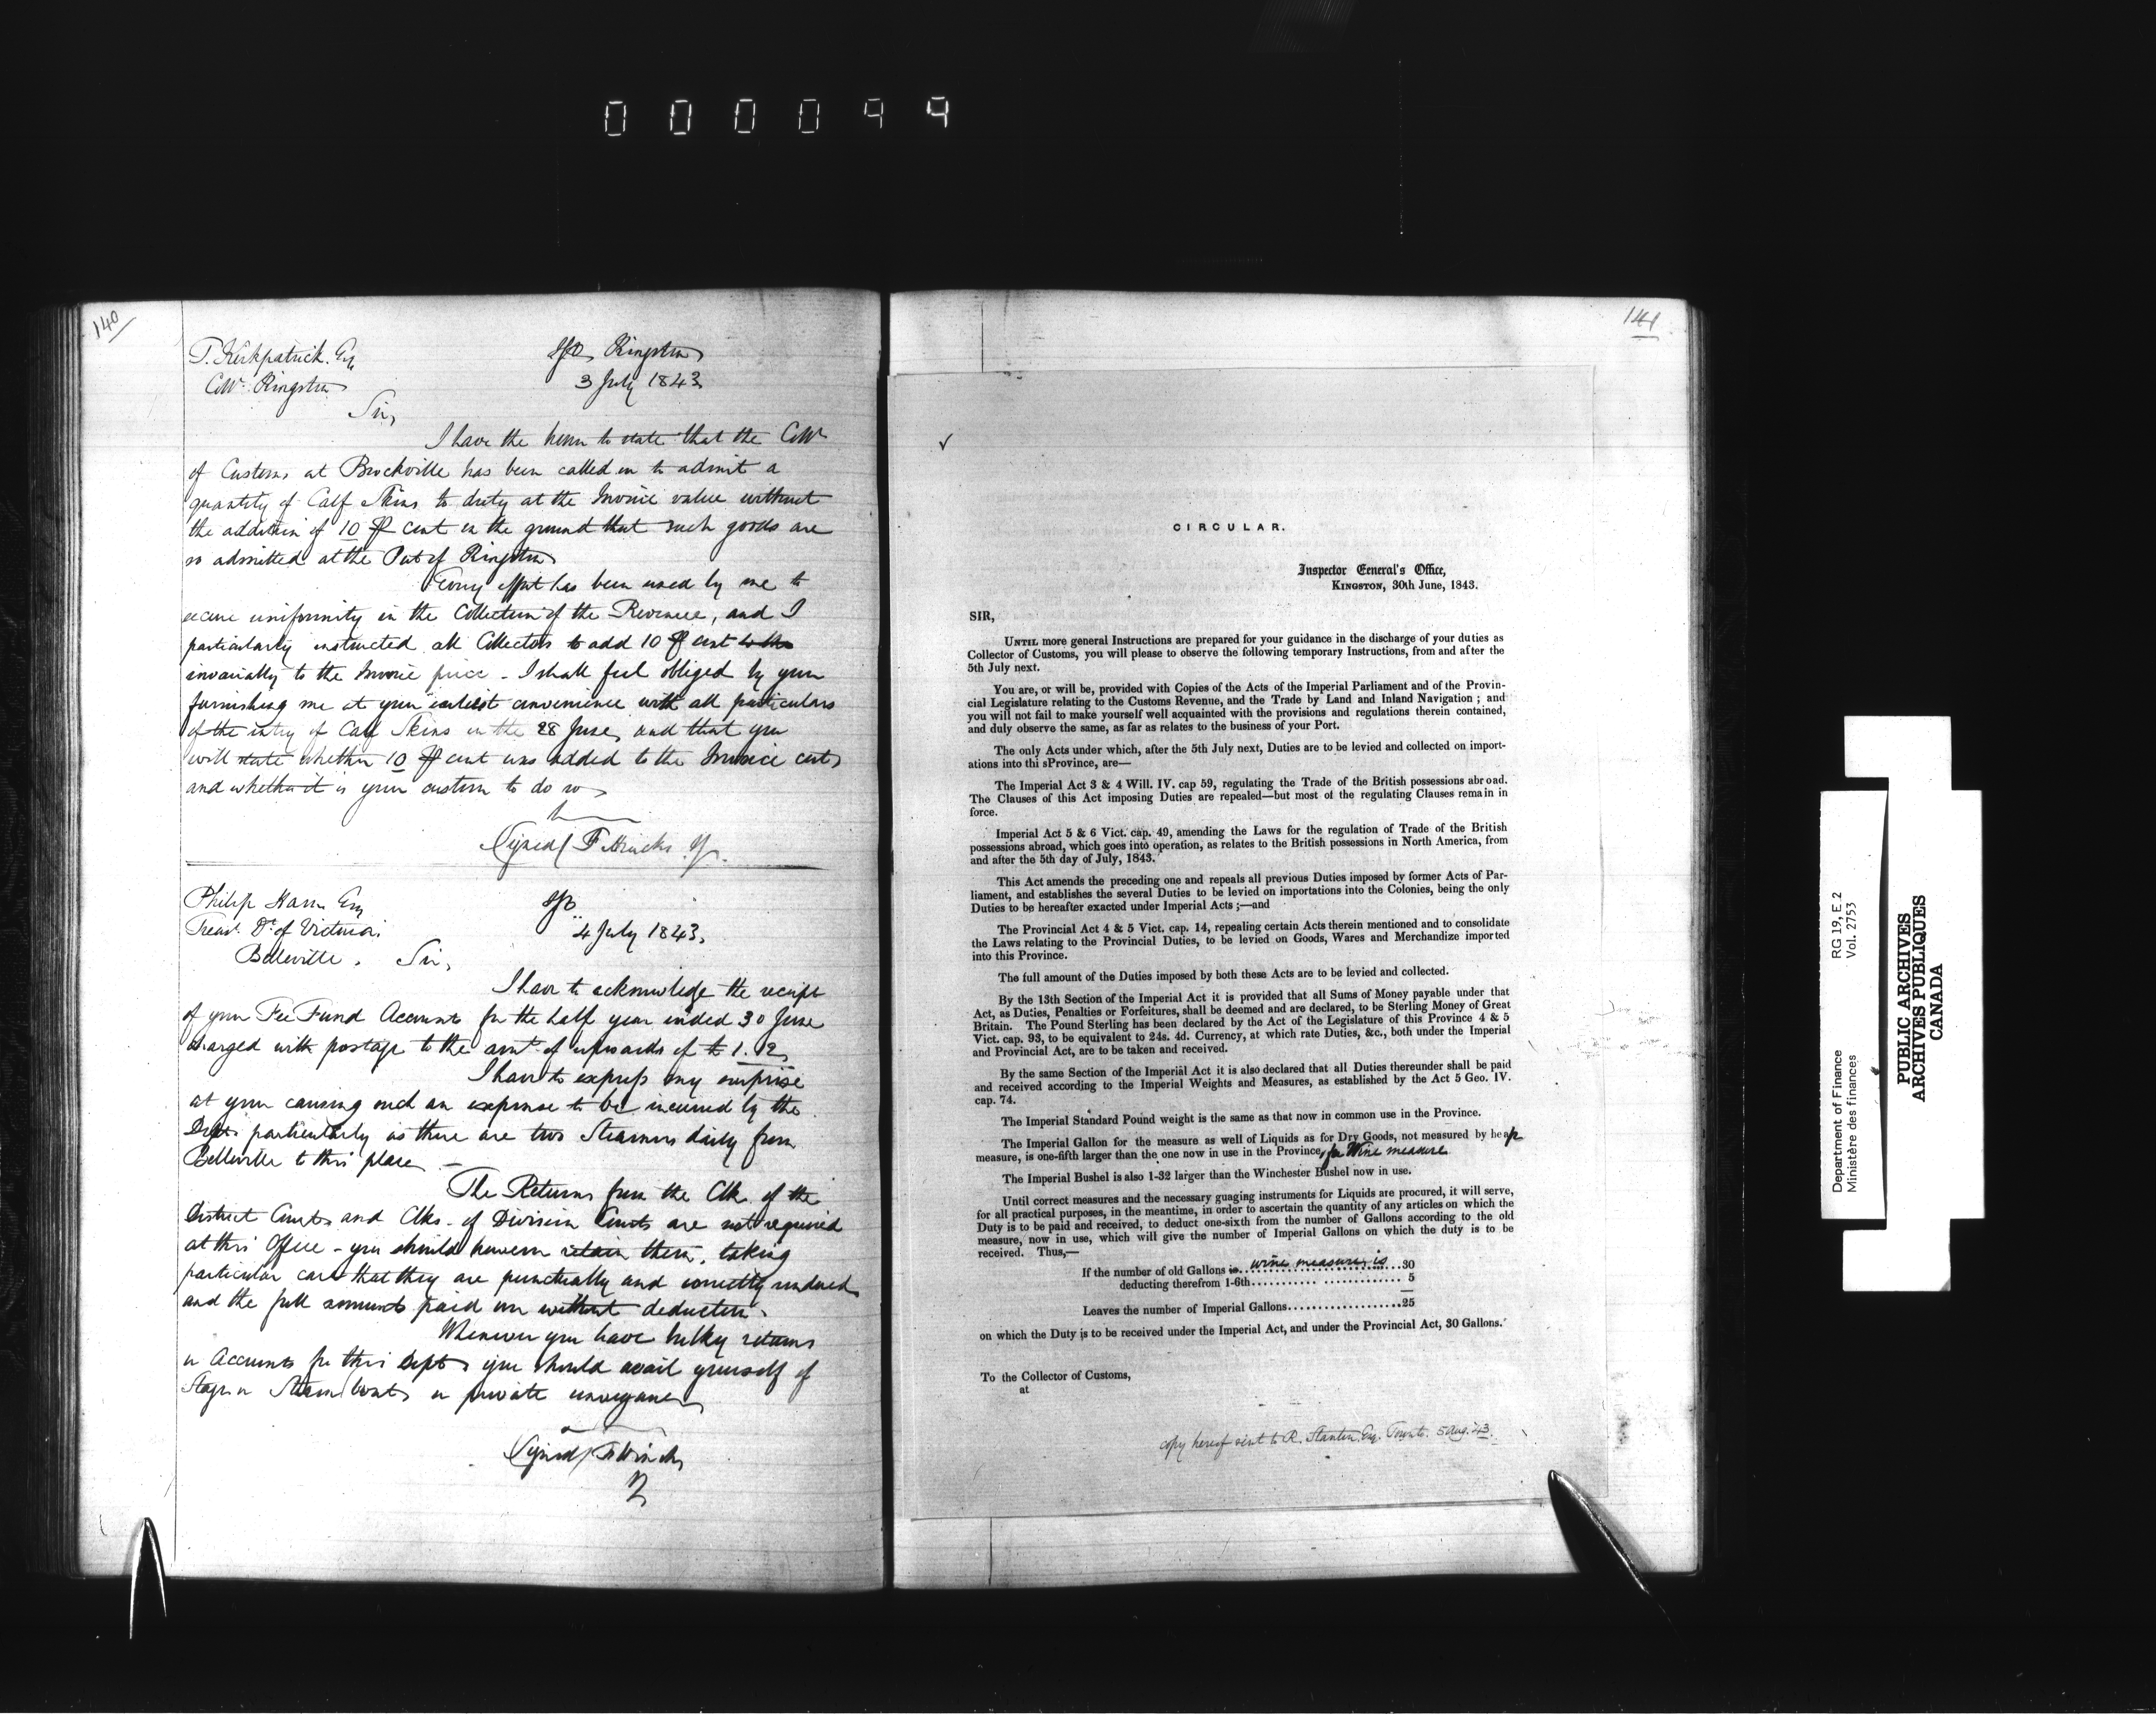 000099
140
T. Kirkpatrick. Esq
Collr. Kingston
IGO, Kingston
3 July 1843
Sir,
I have the honor to state that the Collr
of Customs at Brockville has been called on to admit a
quantity of Calf Skins to duty at the Invoice value without
the addition of 10 P cent on the ground that such goods are
so admitted at the Port of Kingston
Every effort has been used by me to
secure uniformity in the Collection of the Revenue, and I
particularly instructed all Collectors to add 10 P cent to the
invariably to the Invoice price - I shall feel obliged by your
furnishing me at your earliest convenience with all particulars
of the entry of Calf Skins on the 28 June, and that you
will state whether 10 P cent was added to the Invoice cost,
and whether it is your custom to do so
(Signed) F Hincks
Philip Ham Esq
Treasr. Dt. of Victoria.
Belleville.
IGO
4 July 1843,
Sir,
I have to acknowledge the receipt
of your Fee Fund Accounts for the half year ended 30 June
charged with postage to the amt. of upwards of £1.12,
I have to express my surprise
at your causing such an expense to be incurred by the
Dept. particularly as there are two Steamers daily from
Belleville to this place -
The Returns from the Clk. of the
District Courts and Clks. of Division Courts are not required
at this Office - you should however retain them, taking
particular care that they are punctually and correctly rendered
and the full amounts paid over without deduction.
Whenever you have bulky returns
or Accounts for this Dept. you should avail yourself of
Stage or Steam boats or private conveyance
(Signed) F Hincks
141
CIRCULAR.
Inspector General's Office,
KINGSTON, 30th June, 1843.
SIR,
UNTIL more general Instructions are prepared for your guidance in the discharge of your duties as
Collector of Customs, you will please to observe the following temporary Instructions, from and after the
5th July next.
You are, or will be, provided with Copies of the Acts of the Imperial Parliament and of the Provin-
cial Legislature relating to the Customs Revenue, and the Trade by Land and Inland Navigation ; and
you will not fail to make yourself well acquainted with the provisions and regulations therein contained,
and duly observe the same, as far as relates to the business of your Port.
The only Acts under which, after the 5th July next, Duties are to be levied and collected on import-
ations into thi sProvince, are—
The Imperial Act 3 & 4 Will. IV. cap 59, regulating the Trade of the British possessions abroad.
The Clauses of this Act imposing Duties are repealed—but most of the regulating Clauses remain in
force.
Imperial Act 5 & 6 Vict. cap. 49, amending the Laws for the regulation of Trade of the British
possessions abroad, which goes into operation, as relates to the British possessions in North America, from
and after the 5th day of July, 1843.
This Act amends the preceding one and repeals all previous Duties imposed by former Acts of Par-
liament, and establishes the several Duties to be levied on importations into the Colonies, being the only
Duties to be hereafter exacted under Imperial Acts ;—and
The Provincial Act 4 & 5 Vict. cap. 14, repealing certain Acts therein mentioned and to consolidate
the Laws relating to the Provincial Duties, to be levied on Goods, Wares and Merchandize imported
into this Province.
The full amount of the Duties imposed by both these Acts are to be levied and collected.
By the 13th Section of the Imperial Act it is provided that all Sums of Money payable under that
Act, as Duties, Penalties or Forfeitures, shall be deemed and are declared, to be Sterling Money of Great
Britain. The Pound Sterling has been declared by the Act of the Legislature of this Province 4 & 5
Vict. cap. 93, to be equivalent to 24s. 4d. Currency, at which rate Duties, &c., both under the Imperial
and Provincial Act, are to be taken and received.
By the same Section of the Imperial Act it is also declared that all Duties thereunder shall be paid
and received according to the Imperial Weights and Measures, as established by the Act 5 Geo. IV.
cap. 74.
The Imperial Standard Pound weight is the same as that now in common use in the Province.
The Imperial Gallon for the measure as well of Liquids as for Dry Goods, not measured by heap
measure, is one-fifth larger than the one now in use in the Province, for Wine measure
The Imperial Bushel is also 1-32 larger than the Winchester Bushel now in use.
Until correct measures and the necessary guaging instruments for Liquids are procured, it will serve,
for all practical purposes, in the meantime, in order to ascertain the quantity of any articles on which the
Duty is to be paid and received, to deduct one-sixth from the number of Gallons according to the old
measure, now in use, which will give the number of Imperial Gallons on which the duty is to be
received. Thus,—
If the number of old Gallons is wine measure is 30
deducting therefrom 1-6th........... ............... 5
Leaves the number of Imperial Gallons...................25
on which the Duty is to be received under the Imperial Act, and under the Provincial Act, 30 Gallons.
To the Collector of Customs,
at
copy hereof sent to R. Stanton Esq. Toronto. 5 Aug. 43.
Department of Finance RG 19, E 2
Ministère des finances Vol. 2753
PUBLIC ARCHIVES
ARCHIVES PUBLIQUES
CANADA